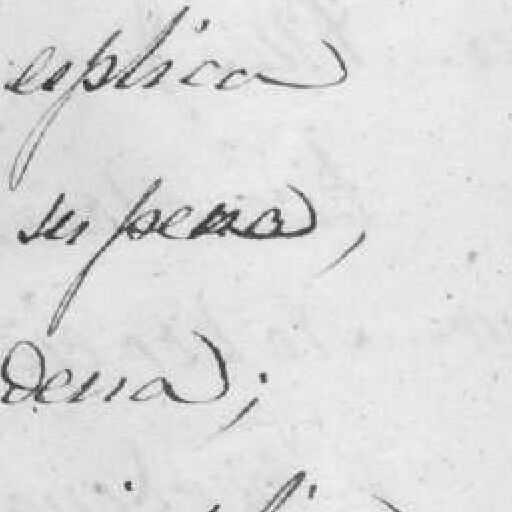 esplica
su pena,
dena;